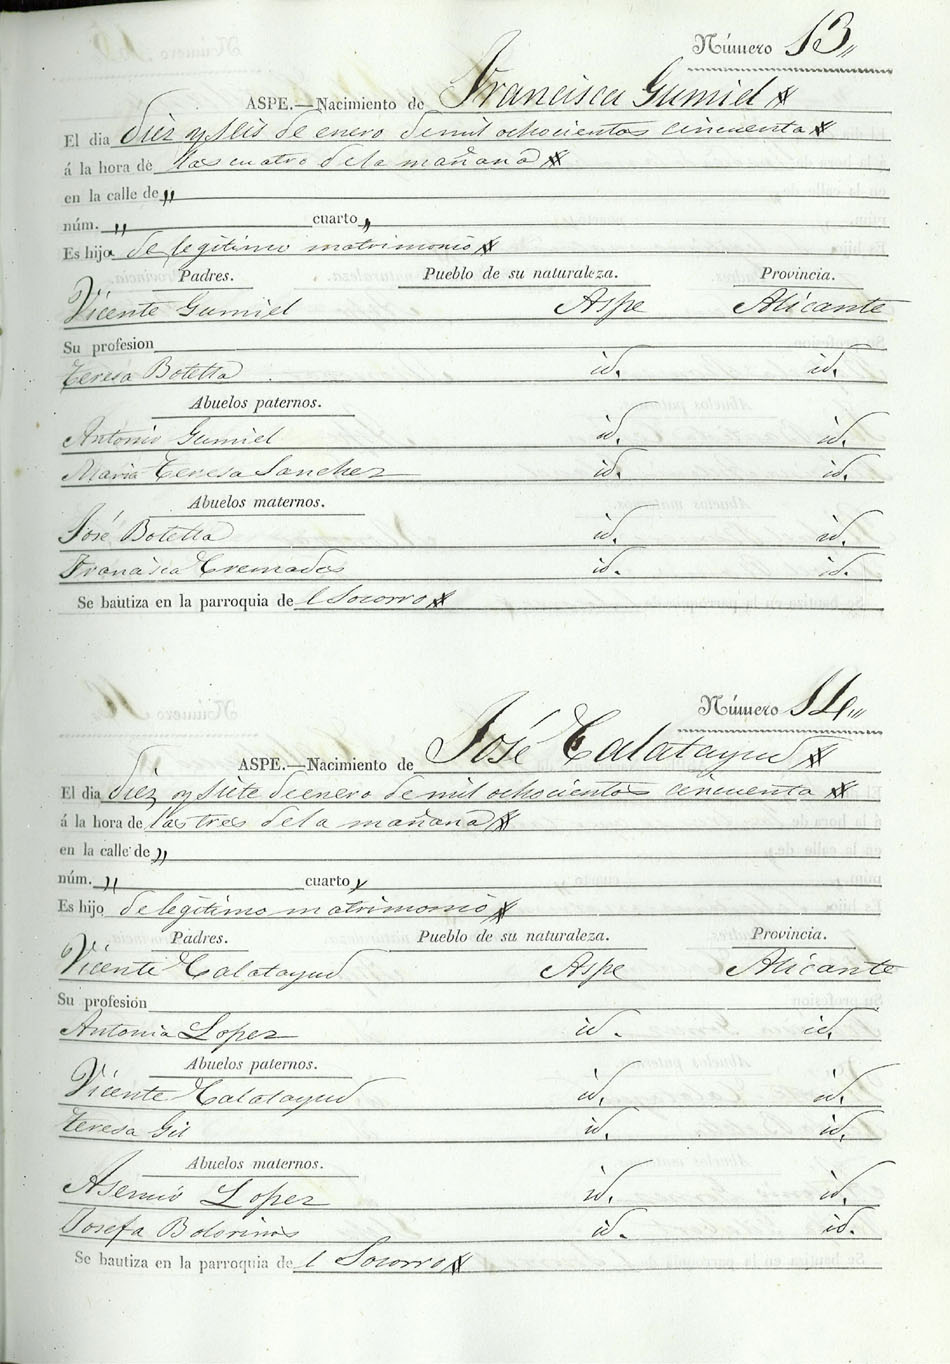 Número 13,,
ASPE.—Nacimiento de Francisca Gumiel
El dia diez y seis de enero de mil ochocientos cincuenta
á la hora de las cuatro de la mañana
en la calle de ,,
núm. ,, cuarto ,,
Es hija de legítimo matrimonio
Padres. Pueblo de su naturaleza. Provincia.
Vicente Gumiel Aspe Alicante
Su profesion
Teresa Botella id. id.
Abuelos paternos.
Antonio Gumiel id. id.
Maria Teresa Sanchez id. id.
Abuelos maternos.
José Botella id. id.
Francisca Cremades id. id.
Se bautiza en la parroquia de l Socorro
Número 14,,
ASPE.—Nacimiento de José Calatayud
El dia diez y siete de enero de mil ochocientos cincuenta
á la hora de las tres de la mañana
en la calle de ,,
núm. ,, cuarto ,,
Es hijo de legítimo matrimonio
Padres. Pueblo de su naturaleza. Provincia.
Vicente Calatayud Aspe Alicante
Su profesión
Antonia Lopez id. id.
Abuelos paternos.
Vicente Calatayud id. id.
Teresa Gil id. id.
Abuelos maternos.
Asensio Lopez id. id.
Josefa Botorinos id. id.
Se bautiza en la parroquia de l Socorro